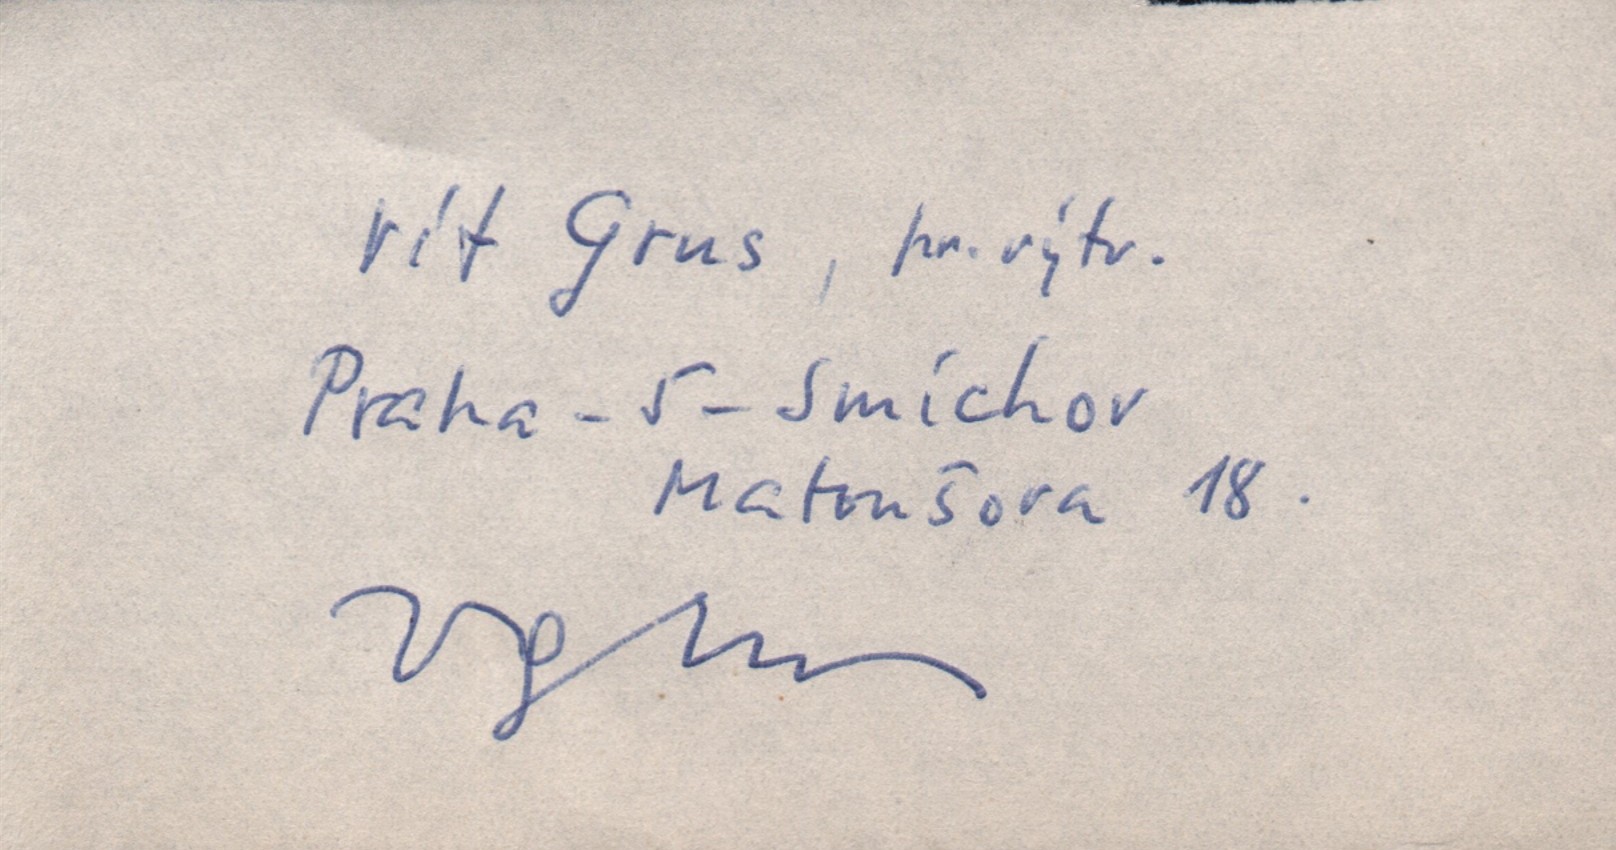 Vít Grus, pr. výtv.
Praha - 5 - Smíchov
Matoušova 18.